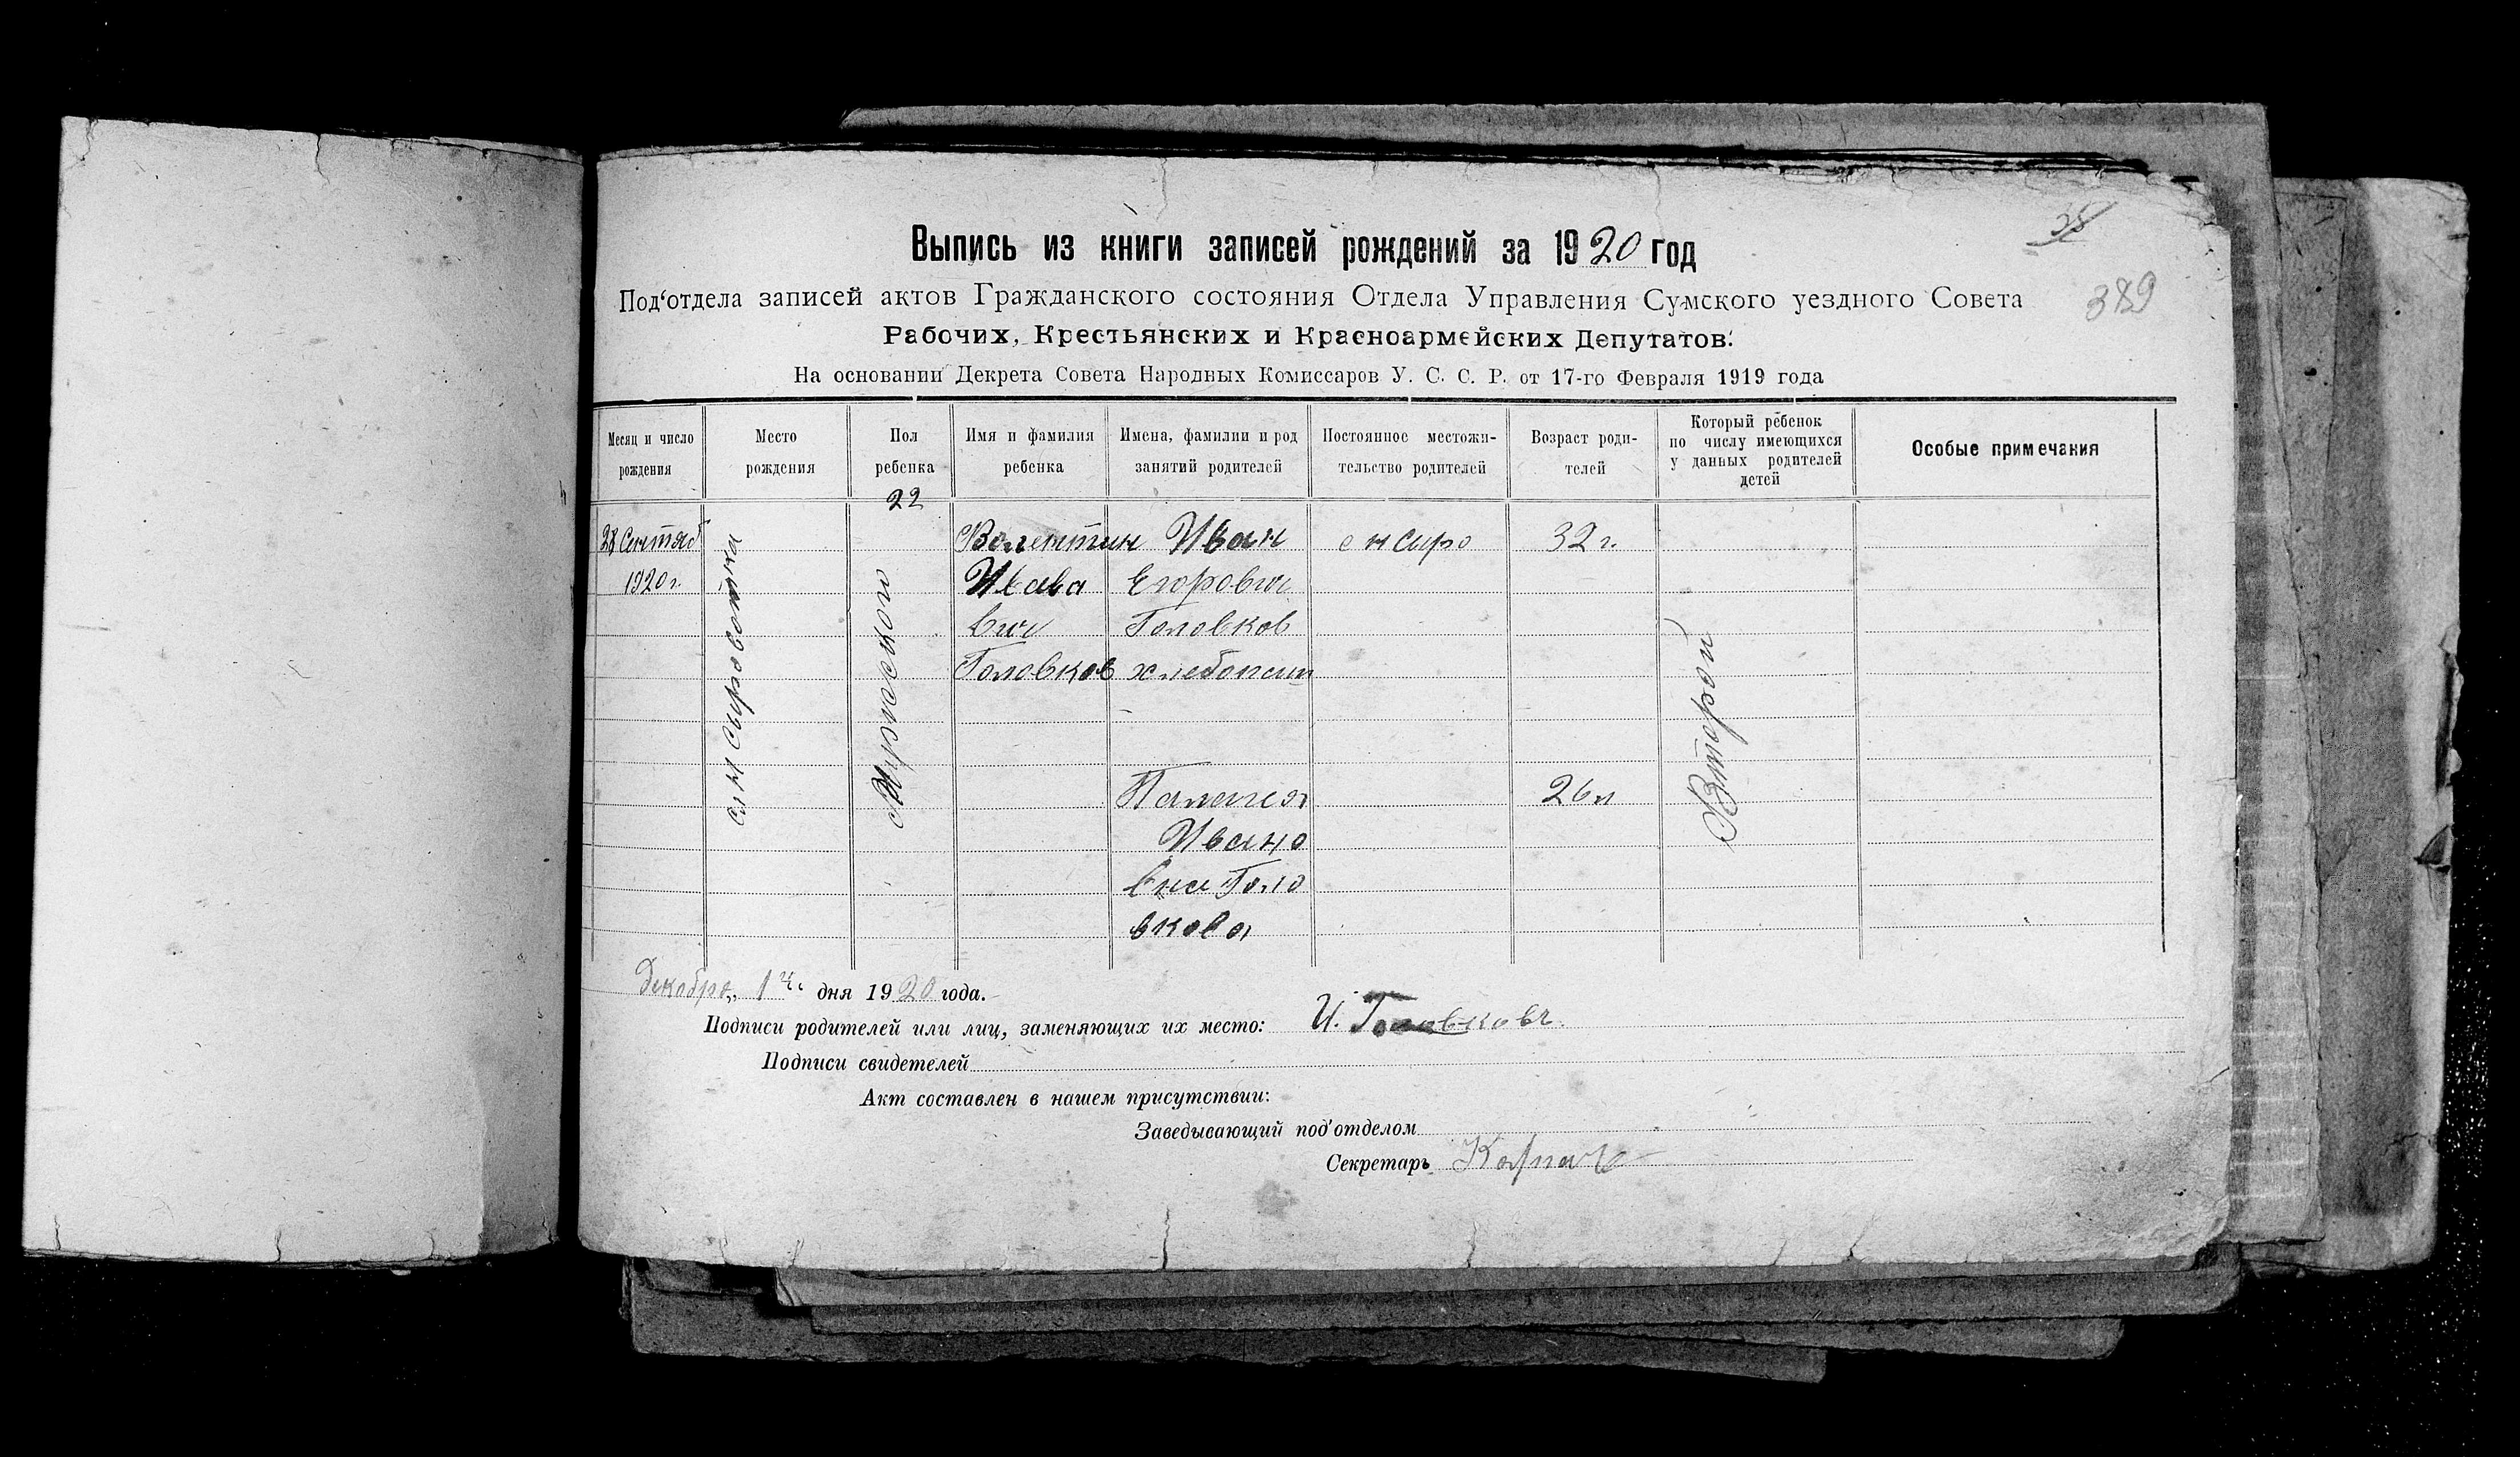 38
389
Выпись из книги записей рождений за 1920 год
Под‘отдела записей актов Гражданского состояния Отдела Управления Сумского уездного Совета
Рабочих, Крестьянских и Красноармейских Депутатов.
На основании Декрета Совета Народных Комиссаров У. С. С. Р. от 17-го Февраля 1919 года
Месяц и число
рождения
Место
рождения
Пол
ребенка
Имя и фамилия
ребенка
Имена, фамилии и род
занятий родителей
Постоянное местожи-
тельство родителей
Возраст роди-
телей
Который ребенок
по числу имеющихся
у данных родителей
детей
Особые примечания
22
28 Сентяб
1920 г.
с. Н Сыроватка
Мужского
Валентин
Ивана
вич
Головков
Иван
Егорович
Головков
хлебопаш
с Н Сыро
32 г.
Второй
Палагея
Ивано
вна Голо
вкова
26 л
Декабря 1 дня 1920 года.
Подписи родителей или лиц, заменяющих их место: И. Головковъ
Подписи свидетелей
Акт составлен в нашем присутствии:
Заведывающий под‘отделом
Секретарь